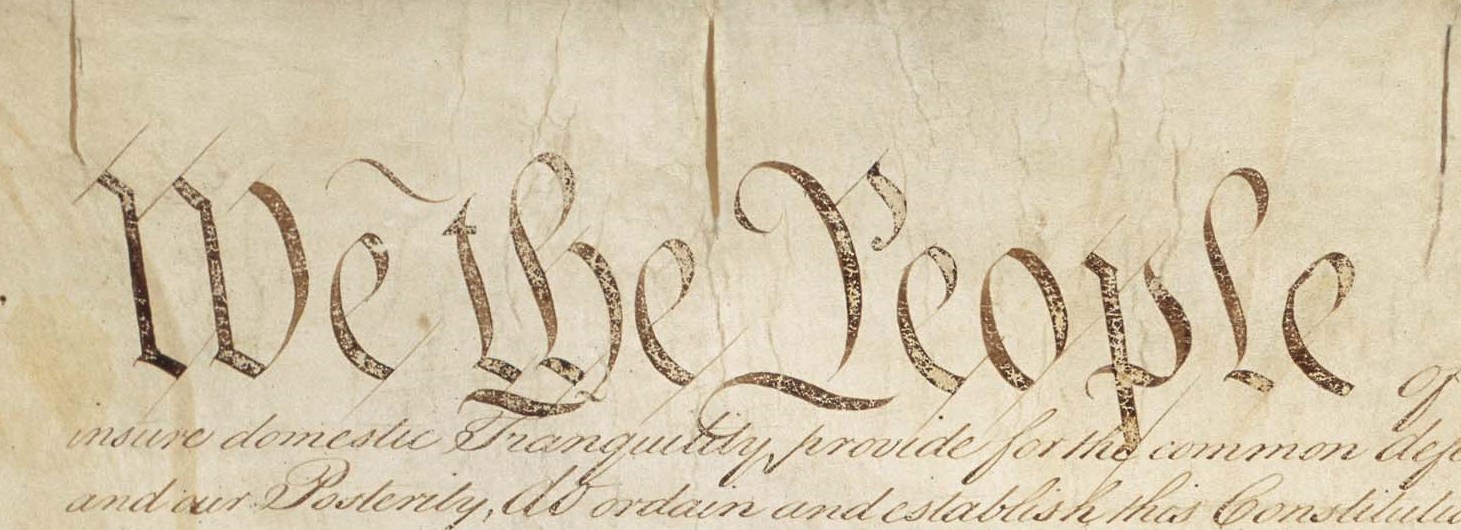 We the People
insure domestic Tranquility, provide for the common defe
and our Posterity, do ordain and establish this Constitutio